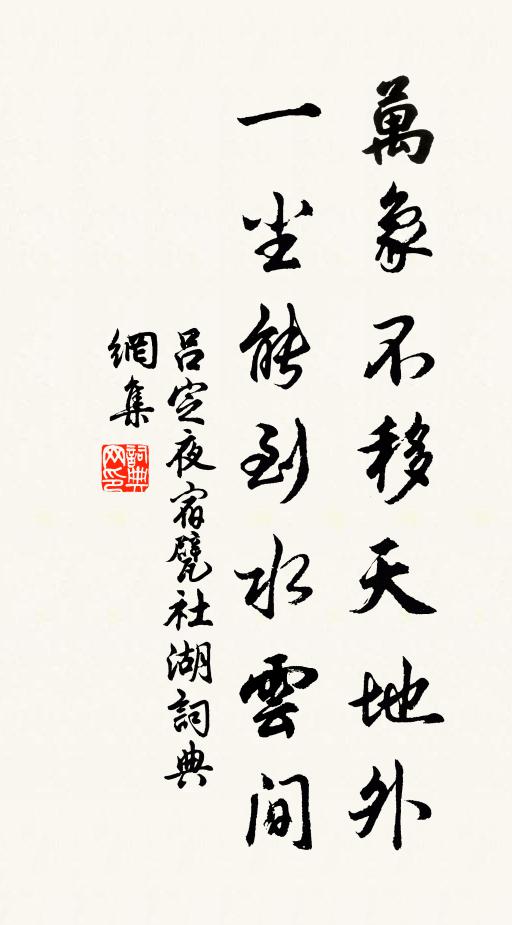 萬象不移天地外
一尘能到水雲間
呂定夜宿甓社湖詞典
網集
詞典
网印